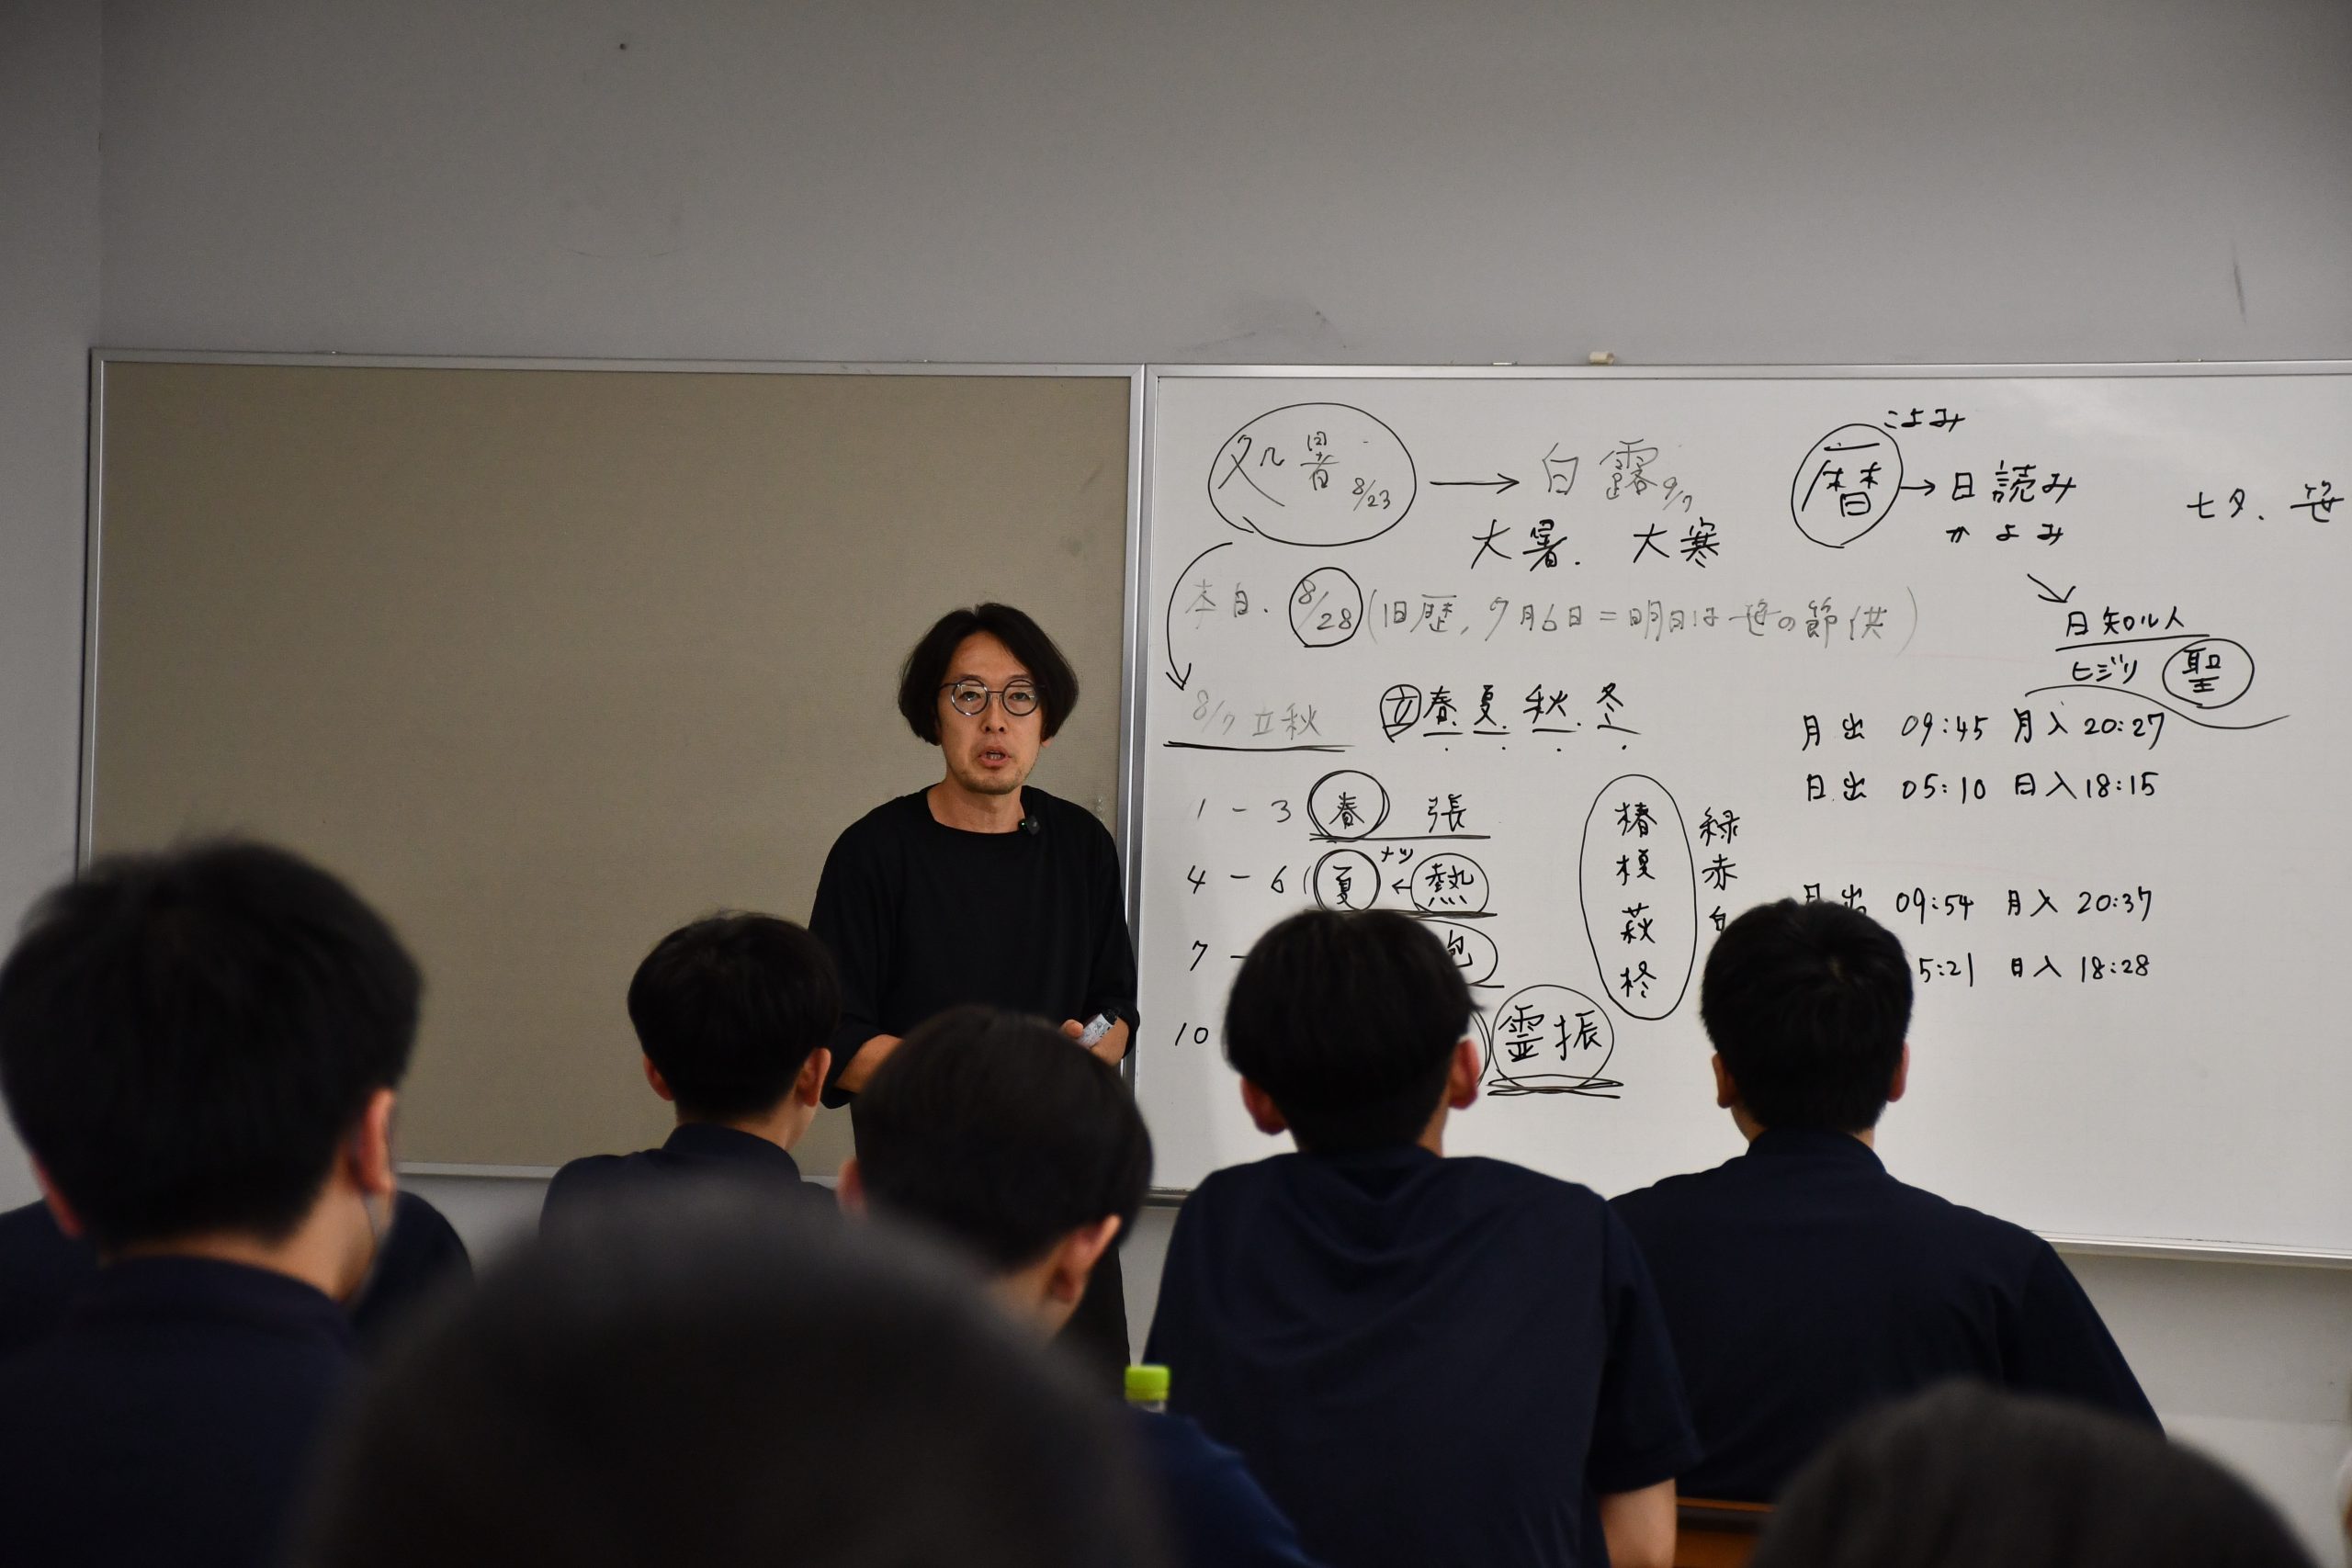 処暑 8/23 → 白露 9/7
大暑. 大寒
本日. 8/28 (旧歴, 7月6日=明日は笹の節供)
8/7 立秋
立 春 夏 秋 冬
1 - 3 春 張
4 - 6 夏 ナツ ← 熱
7 -
10
霊振
椿
榎
萩
柊
緑
赤
こよみ
暦 → 日読み
かよみ
七夕. 笹
日知ル人
ヒジリ 聖
月出 09:45 月入 20:27
日出 05:10 日入 18:15
月出 09:54 月入 20:37
5:21 日入 18:28